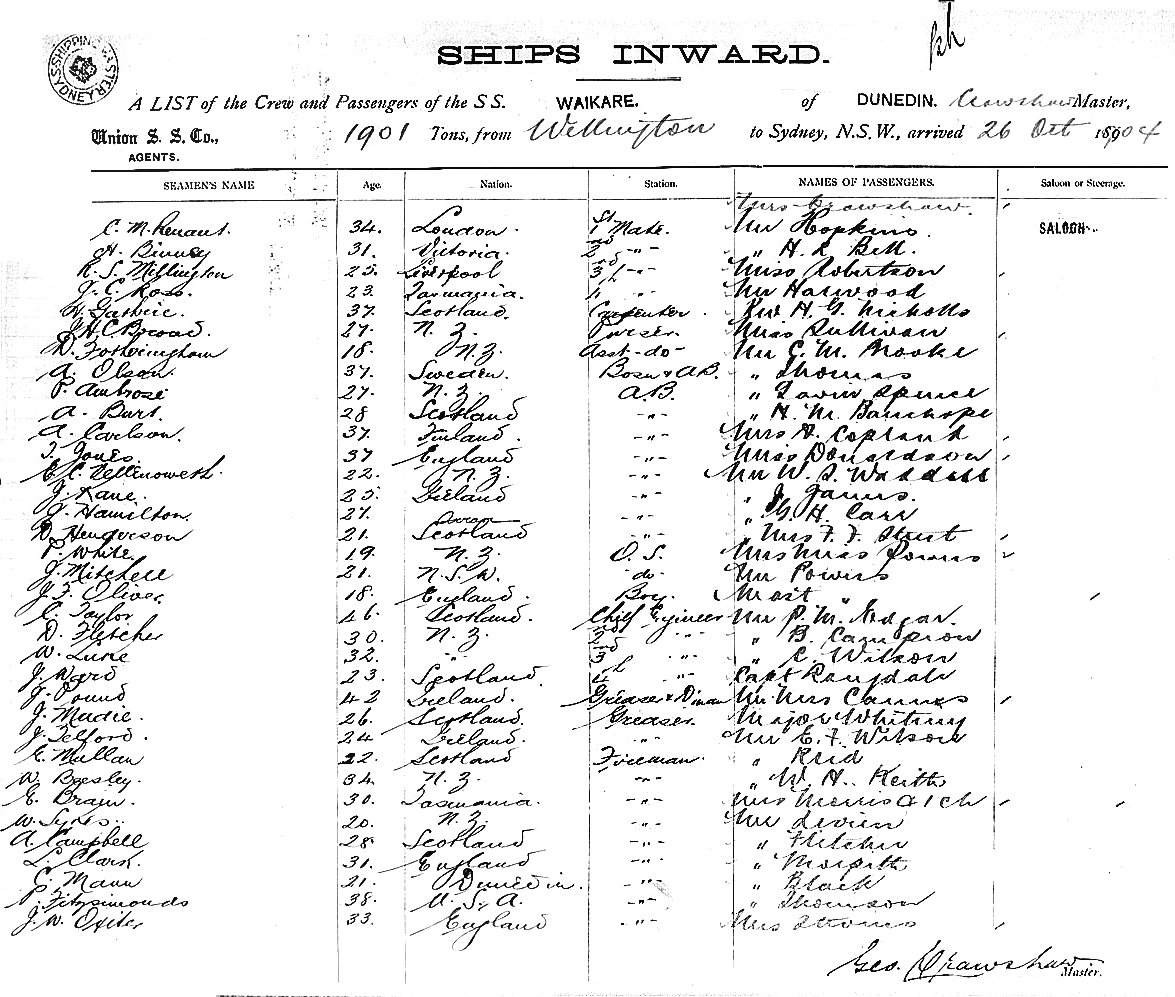 SHIPPING MASTER SYDNEY
SHIPS INWARD.
A LIST of the Crew and Passengers of the S.S. WAIKARE. of DUNEDIN. Crawshaw Master,
Union S. S. Co., 1901 Tons, from Wellington to Sydney, N.S.W., arrived 26 Oct 1904
AGENTS.
SEAMEN'S NAME Age. Nation. Station. NAMES OF PASSENGERS. Saloon or Steerage.
Mrs Crawshaw
34. London. 1st Mate. Mr Hopkins. SALOON
31. Victoria. 2nd -"- " H. L. Bell.
R. S. Millington 25. Liverpool 3rd -"- Miss Robertson
J. C. Ross. 23. Tasmania. -"- Mr Harwood
W. Guthrie. 37. Scotland. Carpenter Rev H. G. Nicholls
27. N. Z. Purser. Miss Sullivan
D. Fotheringham 18. N. Z. Asst-do- Mr C. M. Brooke
A. Olsen. 37. Sweden. Bosn & A.B. " Thomas
P. Ambrose 27. N. Z. A.B. " Spence
A. Burt. 28 Scotland -"- " H. M.
A. Carlson. 37. Finland. -"- Copland
T. Jones. 37 England -"- Miss Donaldson
E. C. Vellenoweth. 22. N. Z. -"- Mr W. S. Waddell
J. Kane. 25. Ireland -"- " J.
J. Hamilton. 27. -"- " G. H. Carr
D. Henderson 21. Scotland -"- " Mrs F. F. Street
P. White. 19. N. Z. O. S. Mrs Miss Powers
J. Mitchell 21. N. S. W. do- Mr Powers
J. F. Oliver. 18. England. Boy. "
C. Taylor 46. Scotland. Chief Engineer Mr P. M. Nedgar.
D. Fletcher 30. N. Z. 2nd -"- " B. Campion
W. Lune 32. " 3 -"- " C. Wilson
J. Ward 23. Scotland. 4 -"- Capt
J. Pound 42 Ireland. Greaser & D'man Mr Mrs
J. Mudie. 26. Scotland. Greaser. Major Whitney
J. Telford. 24 Ireland. -"- Mr E. F. Wilson
E. Mullan 22. Scotland Fireman. " Reid
W. Beesley. 34. N. Z. -"- " W. H. Keith
E. Brain. 30. Tasmania. -"- Mrs Morris a 1 ch
W. Sykes. 20. N. Z. -"- Mr Levien
A. Campbell 28. Scotland -"- " Fletcher
L. Clark. 31. England -"- " Morpeth
C. Mann 21. Dunedin. -"- " Black
P. Fitzsimonds 38. U. S. A. -"- " Thomson
J. W. 33. England -"- Mrs
Geo. Crawshaw Master.